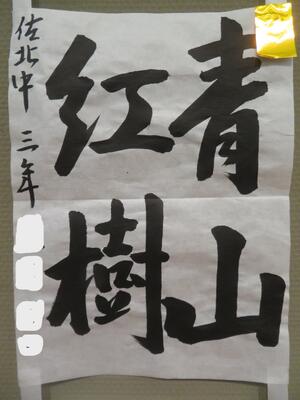 青山
紅樹
佐北中 三年